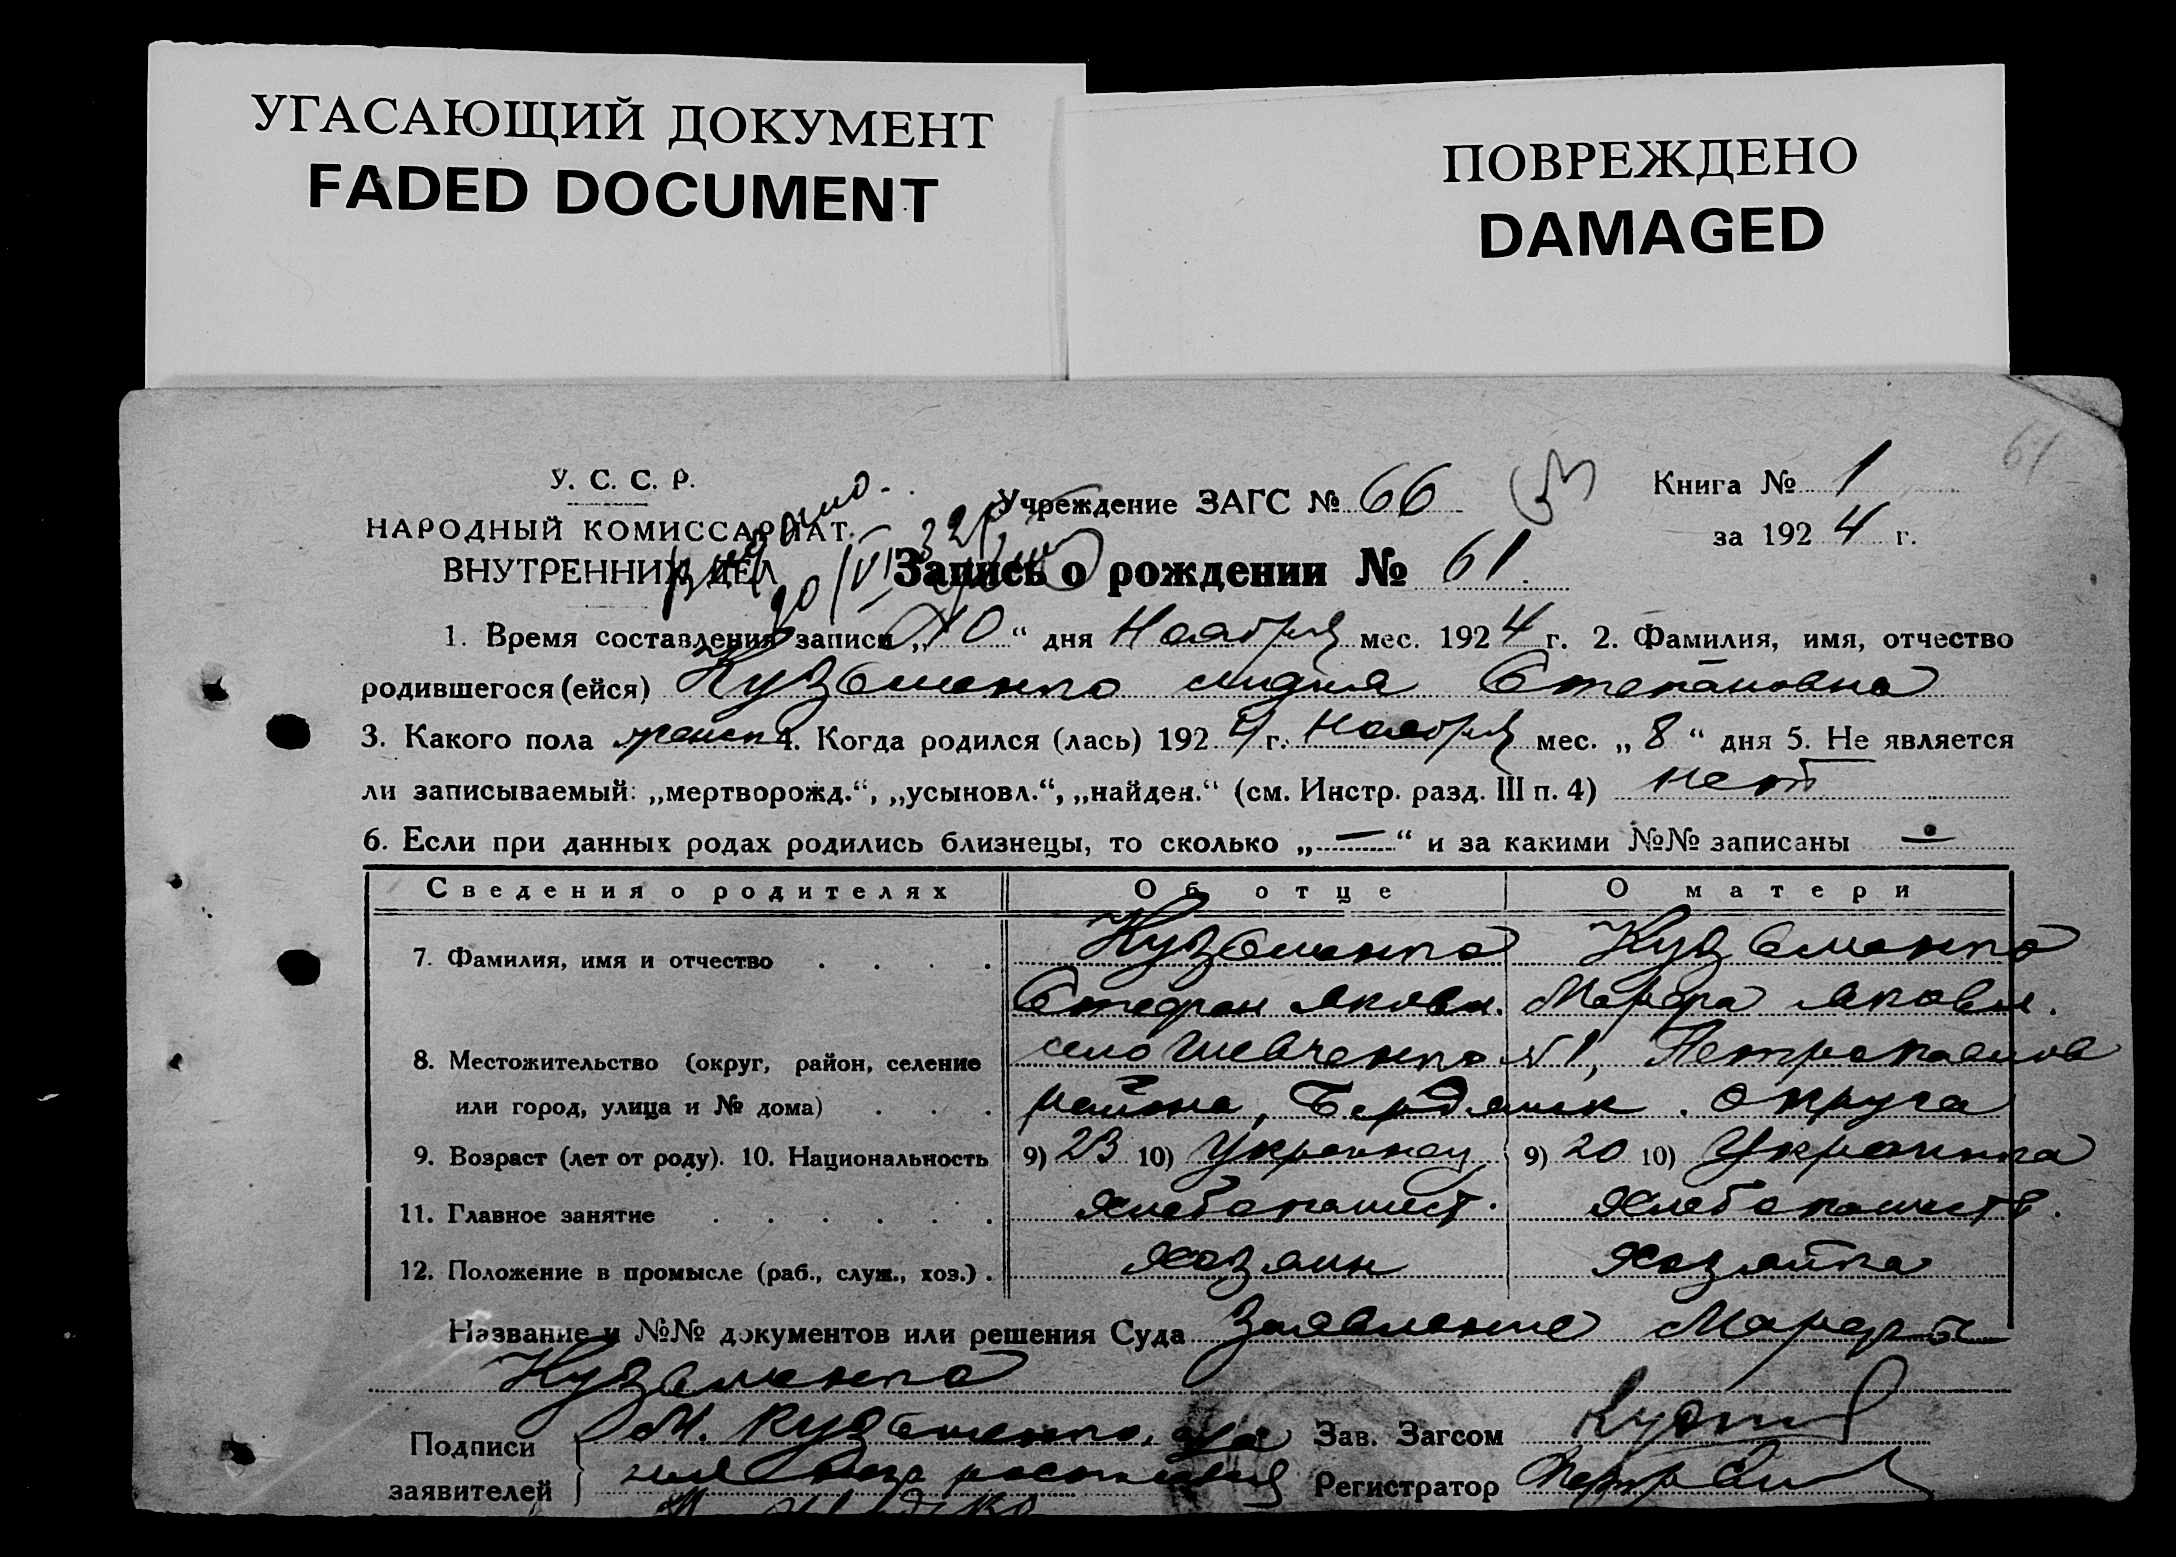 УГАСАЮЩИЙ ДОКУМЕНТ
FADED DOCUMENT
ПОВРЕЖДЕНО
DAMAGED
61
У. С. С. Р.
НАРОДНЫЙ КОМИССАРИАТ
ВНУТРЕННИХ ДЕЛ
Учреждение ЗАГС № 66
Книга № 1
за 1924 г.
Запись о рождении № 61.
1. Время составления записи „10“ дня Ноября мес. 1924 г. 2. Фамилия, имя, отчество
родившегося (ейся) Кузьменко Лидия Степановна
3. Какого пола женск 4. Когда родился (лась) 1924 г. Ноября мес. „8“ дня 5. Не является
ли записываемый: „мертворожд.“, „усыновл.“, „найден.“ (см. Инстр. разд. III п. 4) нет
6. Если при данных родах родились близнецы, то сколько „—“ и за какими №№ записаны —
Сведения о родителях Об отце О матери
7. Фамилия, имя и отчество . . . . Кузьменко Кузьменко
Стефан Яковл. Марфа Яковл.
8. Местожительство (округ, район, селение село Шевченко №1, Петропавлов
или город, улица и № дома) . . . района, Бердянск. округа
9. Возраст (лет от роду). 10. Национальность 9) 23 10) Украинец 9) 20 10) Украинка
11. Главное занятие . . . . . . Хлебопашест. Хлебопашеств.
12. Положение в промысле (раб., служ., хоз.) . Хозяин Хозяйка
Название и №№ документов или решения Суда Заявление Марфы
Кузьменко
Подписи М. Кузьменко, Зав. Загсом
заявителей Регистратор